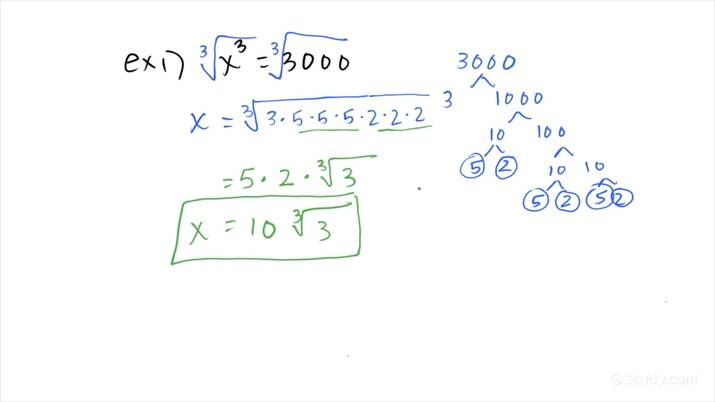 ex1) ∛x³ = ∛3000
x = ∛3·5·5·5·2·2·2
= 5·2·∛3
x = 10 ∛3
3000
3 1000
10 100
5 2 10 10
5 2 5 2
©Study.com